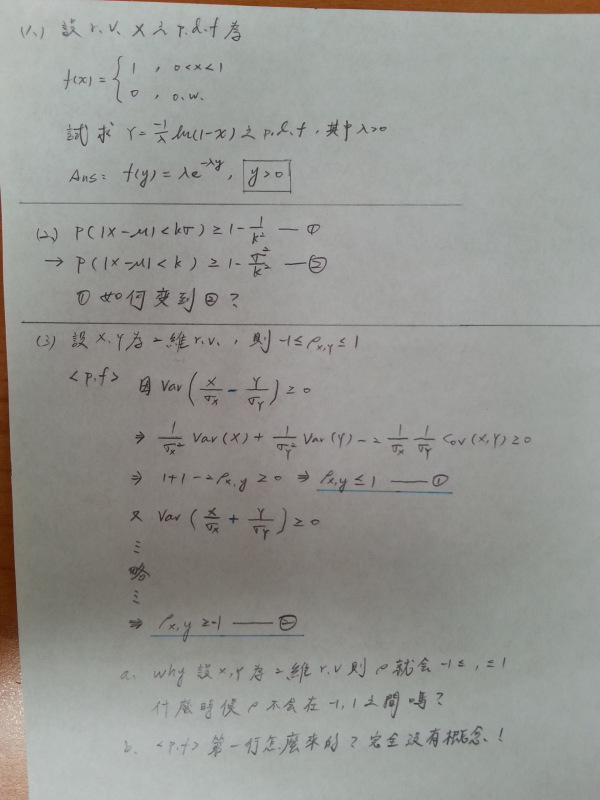 (1.) 設 r.v. X 之 p.d.f 為
f(x) = { 1 , 0<x<1
0 , o.w.
試求 Y = -1/λ ln(1-x) 之 p.d.f , 其中 λ>0
Ans: f(y) = λe^{-λy}, y>0
(2.) P(|X-μ|<kσ) ≥ 1 - 1/k² — ①
→ P(|X-μ|<k) ≥ 1 - σ²/k² — ②
① 如何變到 ② ?
(3) 設 X,Y 為二維 r.v. , 則 -1 ≤ ρx,y ≤ 1
<p.f> 因 Var(X/σx - Y/σy) ≥ 0
⇒ 1/σx² Var(X) + 1/σy² Var(Y) - 2 1/σx 1/σy Cov(X,Y) ≥ 0
⇒ 1+1-2ρx,y ≥ 0 ⇒ ρx,y ≤ 1 — ①
又 Var(X/σx + Y/σy) ≥ 0
⋮
略
⋮
⇒ ρx,y ≥ -1 — ②
a. why 設 x,y 為二維 r.v 則 ρ 就会 -1 ≤ , ≤ 1
什麼時候 ρ 不会在 -1,1 之間嗎?
b. <p.f> 第一行怎麼來的? 完全沒有概念!